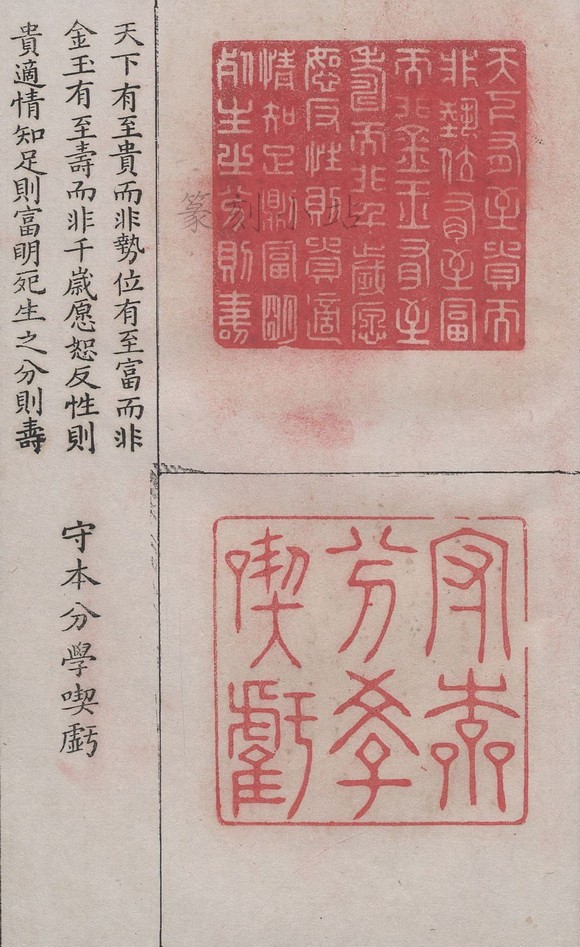 天下有至貴而
非勢位有至富
而非金玉有至
壽而非千歲愿
恕反性則貴適
情知足則富明
死生之分則壽
篆刻小站
守本
分學
喫虧
天下有至貴而非勢位有至富而非
金玉有至壽而非千歲愿恕反性則
貴適情知足則富明死生之分則壽
守本分學喫虧